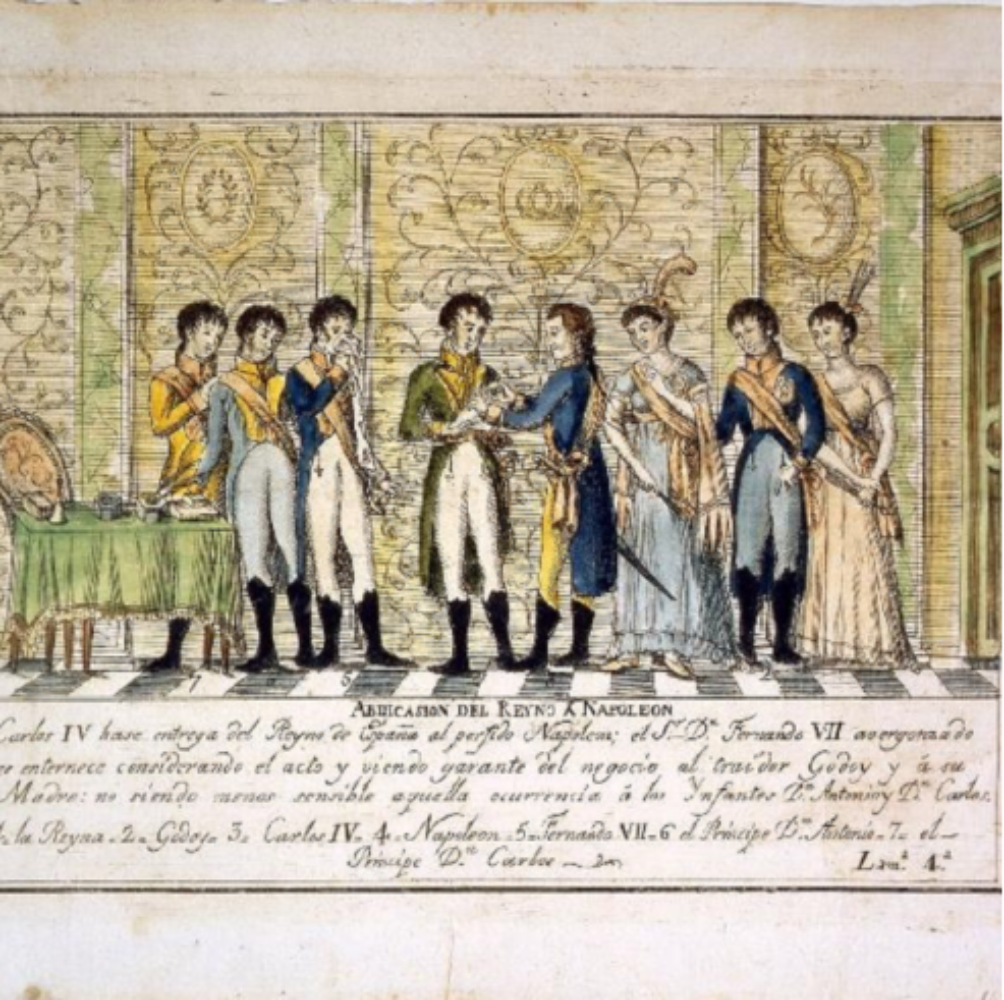 ABDICASION DEL REYNO A NAPOLEON
Carlos IV hase entrega del Reyno de España al perfido Napoleon; el S.r D.n Fernando VII avergonzado
se enternece considerando el acto y viendo garante del negocio al traidor Godoy y á su
Madre: no siendo menos sensible aquella ocurrencia á los Ynfantes D.n Antonio y D.n Carlos.
la Reyna. 2. Godoy. 3. Carlos IV. 4. Napoleon. 5. Fernando VII. 6 el Principe D.n Antonio. 7. el
Principe D.n Carlos
Lam.a 4.a